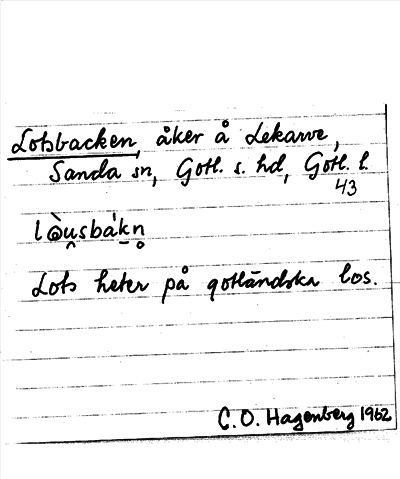 Lotsbacken, åker å Lekarve,
Sanda sn, Gotl. s. hd, Gotl. l.
43
lòusbákn
Lots heter på gotländska los.
C. O. Hagenberg 1962